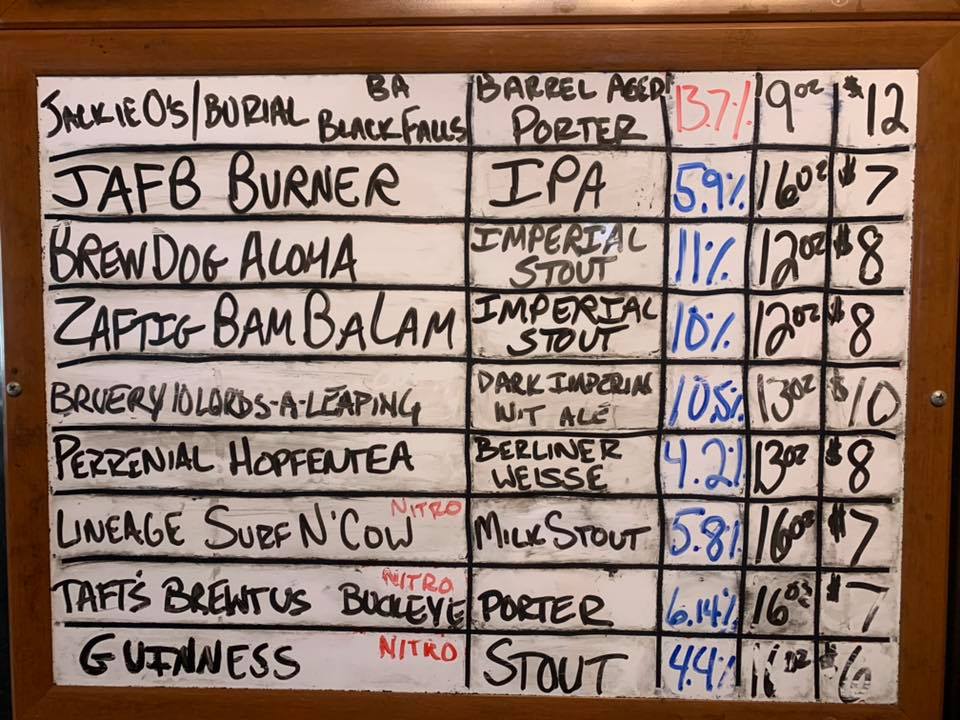 JACKIE O'S/BURIAL BA BLACK FALLS BARREL AGED PORTER 13.7% 9oz $12
JAFB BURNER IPA 5.9% 16oz $7
BREWDOG ALOHA IMPERIAL STOUT 11% 12oz $8
ZAFTIG BAM BALAM IMPERIAL STOUT 10% 12oz $8
BRUERY 10 LORDS-A-LEAPING DARK IMPERIAL WIT ALE 10.5% 13oz $10
PERRENIAL HOPFENTEA BERLINER WEISSE 4.2% 13oz $8
LINEAGE SURF N' COW NITRO MILK STOUT 5.8% 16oz $7
TAFT'S BREWTUS BUCKEYE NITRO PORTER 6.14% 16oz $7
GUINNESS NITRO STOUT 4.4% $6